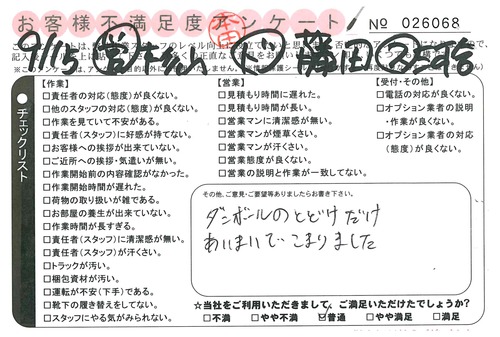 お客様不満足度アンケート
No 026068
【作業】
□責任者の対応(態度)が良くない。
□他のスタッフの対応(態度)が良くない。
□作業を見ていて不安がある。
□責任者(スタッフ)に好感が持てない。
□お客様への挨拶が出来ていない。
□ご近所への挨拶・気遣いが無い。
□作業開始前の内容確認がなかった。
□作業開始時間が遅れた。
□荷物の取り扱いが雑である。
□お部屋の養生が出来ていない。
□作業時間が長すぎる。
□責任者(スタッフ)に清潔感が無い。
□責任者(スタッフ)が汗くさい。
□トラックが汚い。
□梱包資材が汚い。
□運転が不安(下手)である。
□靴下の履き替をしてない。
□スタッフにやる気がみられない。
【営業】
□見積もり時間に遅れた。
□見積もり時間が長い。
□営業マンに清潔感が無い。
□営業マンが煙草くさい。
□営業マンが汗くさい。
□営業態度が良くない。
□営業の説明と作業が一致してない。
【受付・その他】
□電話の対応が良くない。
□オプション業者の説明
・作業が良くない。
□オプション業者の対応
(態度)が良くない。
チェックリスト
その他、ご意見・ご要望等ありましたらお書き下さい。
ダンボールのとどけだけ
あいまいで こまりました
☆当社をご利用いただきまして、ご満足いただけたでしょうか?
□不満 □やや不満 ☑普通 □やや満足 □満足